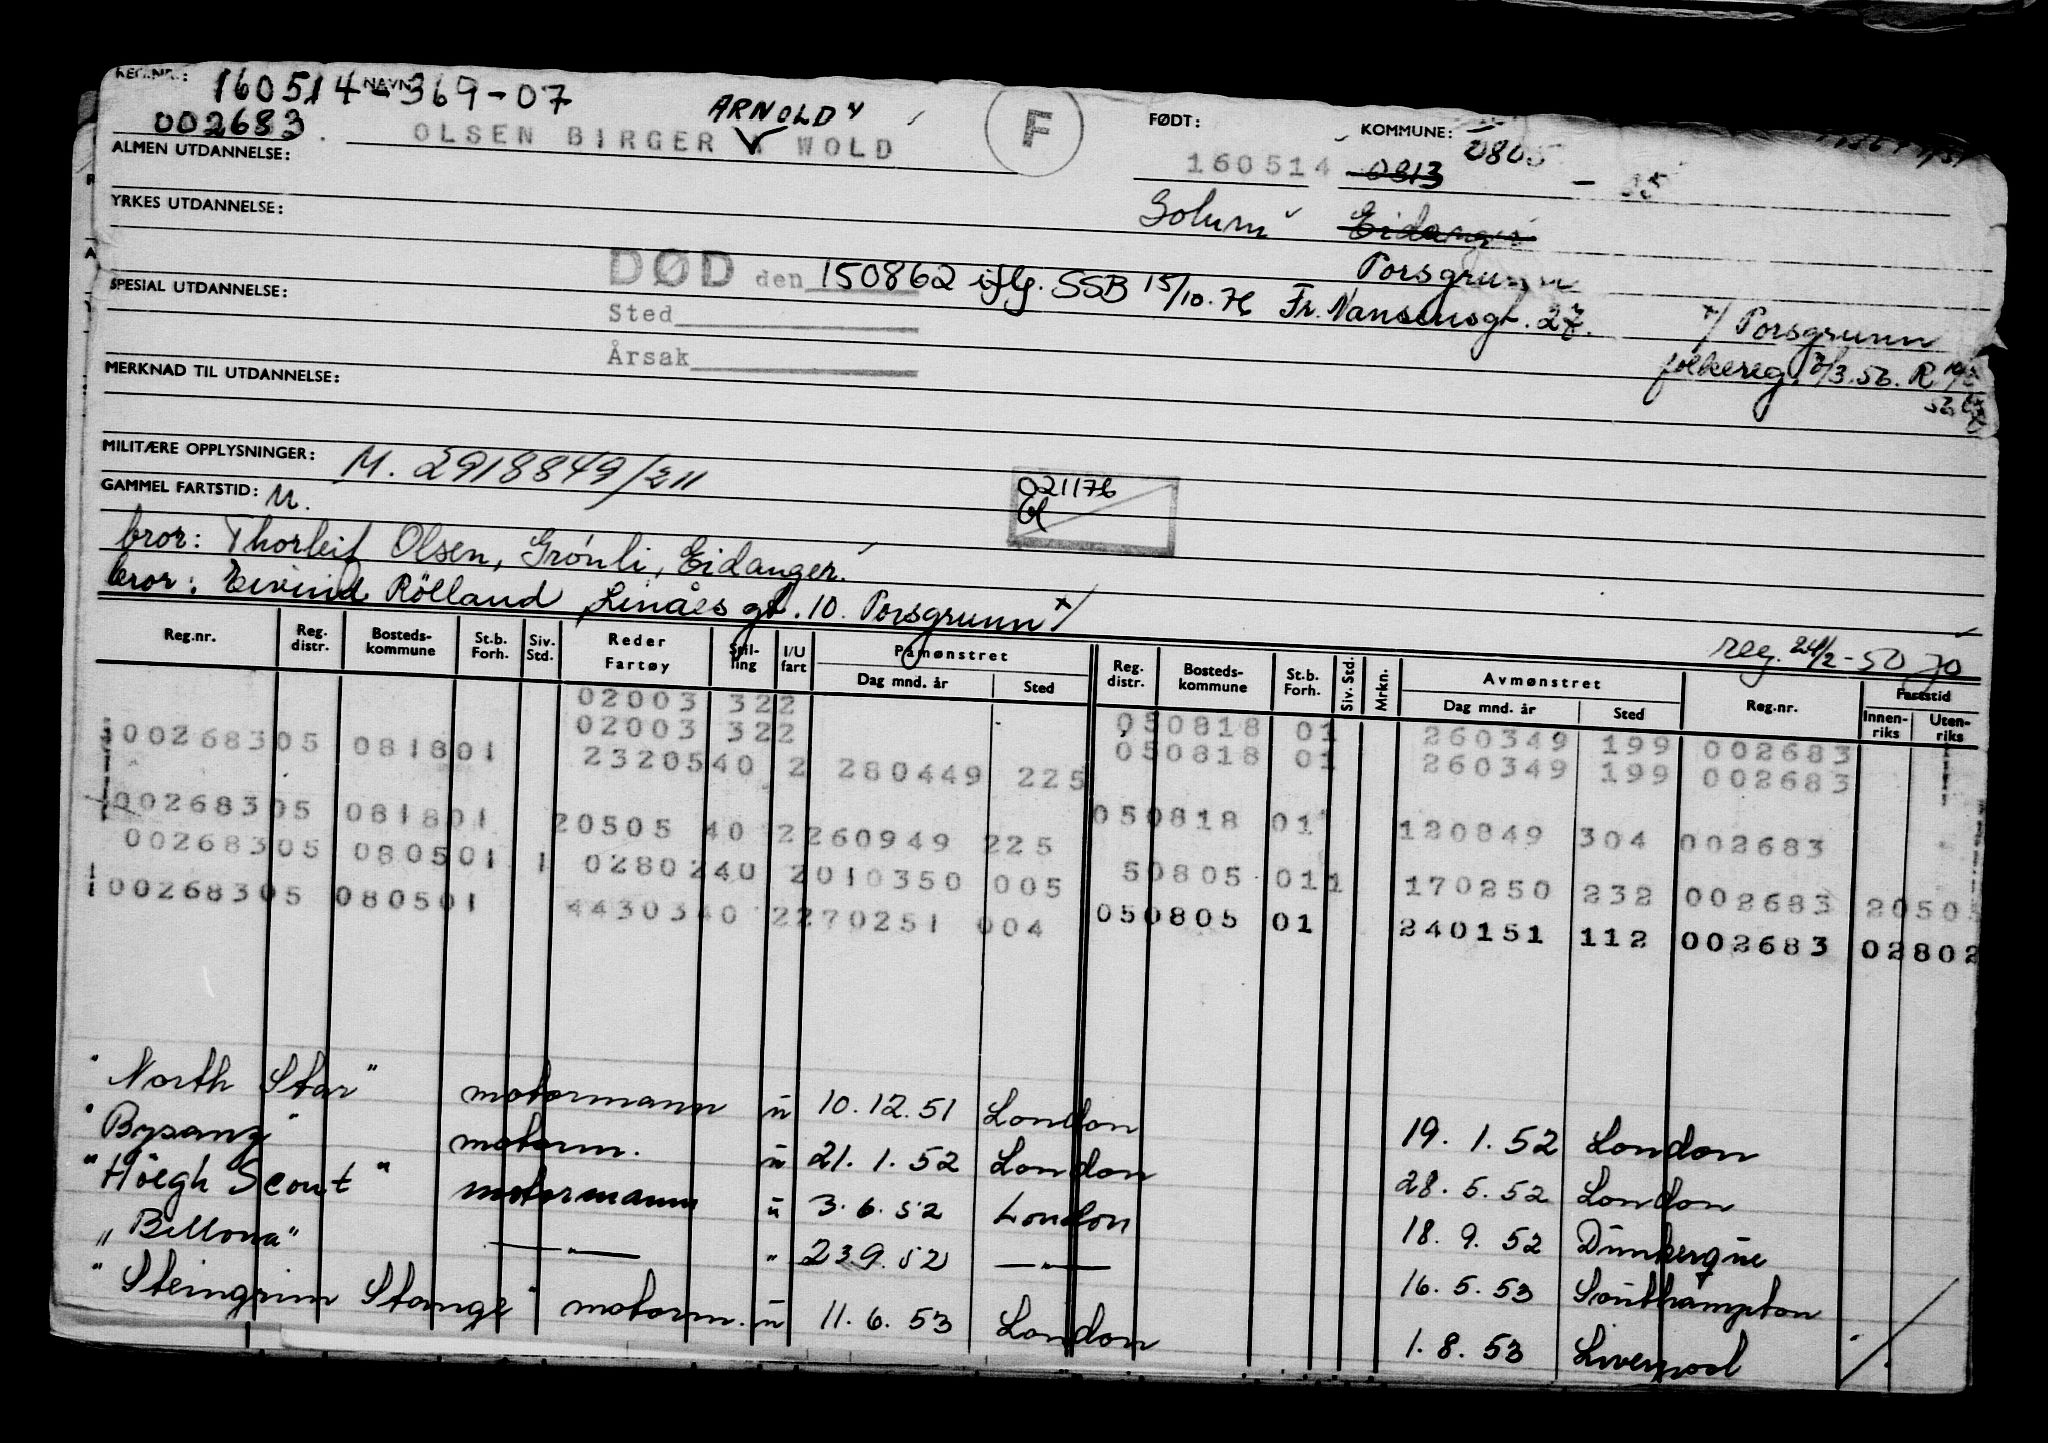 REG.NR.: 160514-369-07 NAVN:
002683. OLSEN BIRGER ARNOLD WOLD F FØDT: 160514 KOMMUNE: 0813 0805
ALMEN UTDANNELSE:
Solum Eidanger
YRKES UTDANNELSE:
Porsgrunn
DØD den 150862 iflg. SSB 15/10.76 Fr. Nansensgt. 27.
SPESIAL UTDANNELSE:
Sted
+/ Porsgrunn
Årsak
folkereg. 3.56. R
MERKNAD TIL UTDANNELSE:
MILITÆRE OPPLYSNINGER: M. 2918849/211
021176
GAMMEL FARTSTID: M.
bror: Thorleif Olsen, Grönli, Eidanger.
bror: Eivind Rölland, Linåes gt. 10. Porsgrunn +/
reg. 24/2-50
Reg.nr. Reg. distr. Bosteds-kommune St.b. Forh. Siv. Std. Reder Fartøy Stil-ling I/U fart Påmønstret Dag mnd. år Sted Reg. distr. Bosteds-kommune St.b. Forh. Siv. Std. Mrkn. Avmønstret Dag mnd. år Sted Reg.nr. Fartstid Innen-riks Uten-riks
02003 322 050818 01 260349 199 002683
02003 322 050818 01 260349 199 002683
00268305 081801 2320540 2 280449 225
050818 01 120849 304 002683
00268305 081801 20505 40 2260949 225
50805 011 170250 232 002683 20505
00268305 080501 1 0280240 2010350 005
050805 01 240151 112 002683 02802
00268305 080501 4430340 2270251 004
"North Star" motormann u 10.12.51 London 19.1.52 London
"Bysanz" motorm. u 21.1.52 London 28.5.52 London
"Höegh Scout" motormann u 3.6.52 London 18.9.52 Dunkerque
"Bellona" —„— " 23.9.52 —„— 16.5.53 Southampton
"Steingrim Stange" motorm. u 11.6.53 London 1.8.53 Liverpool